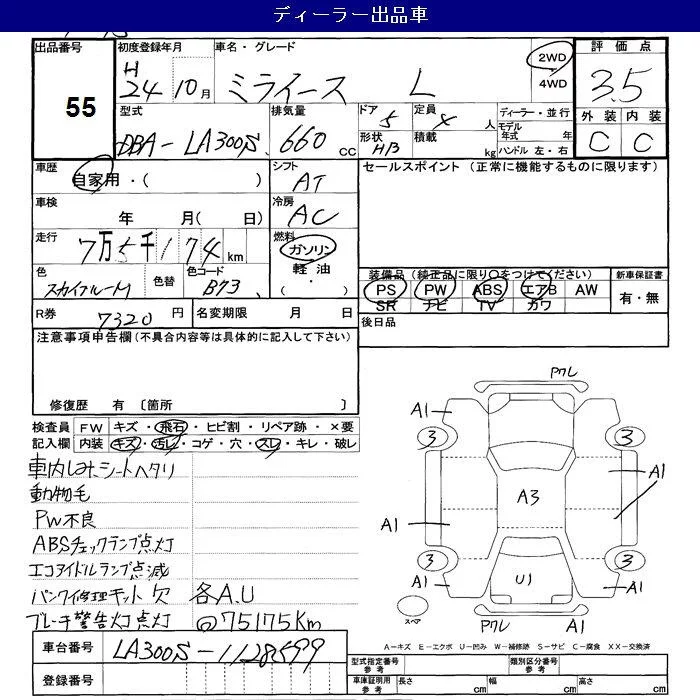 ディーラー出品車
出品番号 初度登録年月 車名・グレード 2WD 評価点
55 H 24 10月 ミライース L 4WD 3.5
型式 排気量 ドア 定員 ディーラー・並行 外装 内装
DBA-LA300S 660 CC 5 4 人 モデル年式 年 C C
形状 H/B 積載 kg ハンドル 左・右
車歴 自家用・( ) シフト AT セールスポイント (正常に機能するものに限ります)
車検 年 月( 日) 冷房 AC
走行 7万5千174 km 燃料 ガソリン 軽油・( )
色 スカイブルーM 色替 色コード B73
装備品 (純正品に限り○をつけてください) 新車保証書
PS PW ABS エアB AW 有・無
SR ナビ TV カワ
R券 7320 円 名変期限 月 日 後日品
注意事項申告欄 (不具合内容等は具体的に記入して下さい)
修復歴 有 〔箇所 〕
検査員 FW キズ・飛石・ヒビ割・リペア跡・×要
記入欄 内装 キズ・汚レ・コゲ・穴・スレ・キレ・破レ
車内しみ、シートヘタリ
動物毛
PW不良
ABSチェックランプ点灯
エコアイドルランプ点滅
パンク修理キット欠 各A.U
ブレーキ警告灯点灯 @75175Km
車台番号 LA300S-1128599
登録番号
Pクレ
A1
3 3
A1
A3
A1
3 3
A1 U1 A1
スペア Pクレ A1
A=キズ E=エクボ U=凹み W=補修跡 S=サビ C=腐食 XX=交換済
型式指定番号 参考 類別区分番号 参考
車庫証明用 参考 長さ cm 幅 cm 高さ cm